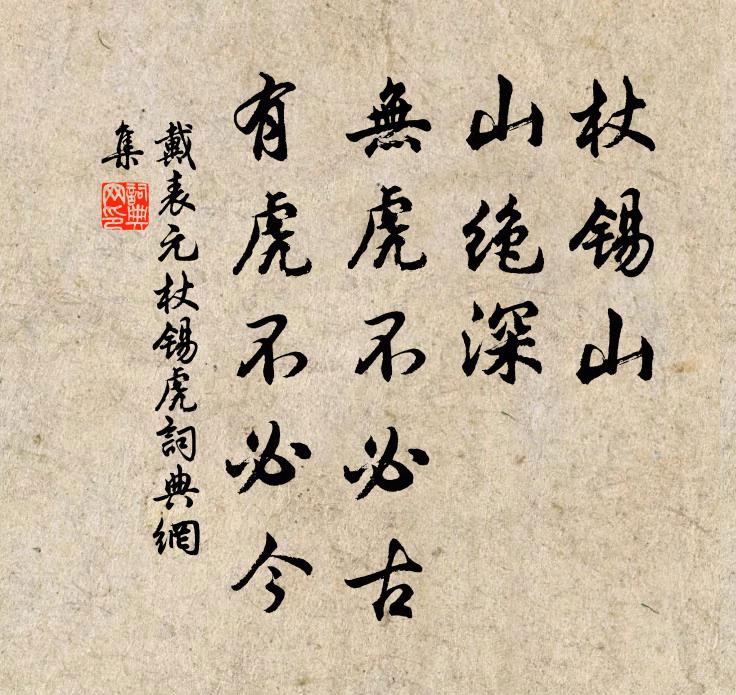 杖锡山
山绝深
無虎不必古
有虎不必今
戴表元杖锡虎詞典網
集
詞典
网印